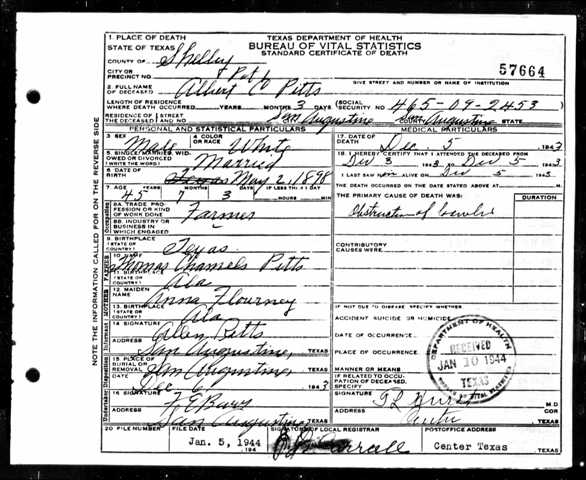 1. PLACE OF DEATH
TEXAS DEPARTMENT OF HEALTH
STATE OF TEXAS
BUREAU OF VITAL STATISTICS
STANDARD CERTIFICATE OF DEATH
COUNTY OF Shelby
57664
CITY OR PRECINCT NO.
GIVE STREET AND NUMBER OR NAME OF INSTITUTION
2. FULL NAME OF DECEASED Albert C Pitts
LENGTH OF RESIDENCE WHERE DEATH OCCURRED YEARS MONTHS 3 DAYS SOCIAL SECURITY NO. 465-09-2453
RESIDENCE OF THE DECEASED STREET NO. San Augustine San Augustine STATE
PERSONAL AND STATISTICAL PARTICULARS
MEDICAL PARTICULARS
3. SEX Male 4. COLOR OR RACE White
17. DATE OF DEATH Dec 5 1943
5. SINGLE, MARRIED, WIDOWED OR DIVORCED (WRITE THE WORD) Married
18. I HEREBY CERTIFY THAT I ATTENDED THE DECEASED FROM Dec 3 1943 TO Dec 5 1943
6. DATE OF BIRTH Texas May 2, 1898
I LAST SAW ALIVE ON Dec 5 1943
7. AGE 45 7 3 IF LESS THAN 1 DAY
THE DEATH OCCURRED ON THE DATE STATED ABOVE AT M.
8A. TRADE, PROFESSION OR KIND OF WORK DONE Farmer
THE PRIMARY CAUSE OF DEATH WAS: DURATION
Obstruction of bowels
8B. INDUSTRY OR BUSINESS IN WHICH ENGAGED
9. BIRTHPLACE (STATE OR COUNTRY) Texas
CONTRIBUTORY CAUSES WERE:
10. NAME Thomas Pitts
11. BIRTHPLACE (STATE OR COUNTRY) Ala
12. MAIDEN NAME Anna Flourney
IF NOT DUE TO DISEASE SPECIFY WHETHER:
13. BIRTHPLACE (STATE OR COUNTRY) Ala
ACCIDENT SUICIDE OR HOMICIDE
14. SIGNATURE Ellen Pitts
DATE OF OCCURRENCE
ADDRESS San Augustine, TEXAS
PLACE OF OCCURRENCE
15. PLACE OF BURIAL OR REMOVAL San Augustine, TEXAS
MANNER OR MEANS
DATE Dec 6 1943
IF RELATED TO OCCUPATION OF DECEASED, SPECIFY
16. SIGNATURE
M.D.
ADDRESS San Augustine TEXAS
ADDRESS TEXAS
20. FILE NUMBER FILE DATE SIGNATURE OF LOCAL REGISTRAR POSTOFFICE ADDRESS
Jan. 5, 1944 .194 Center Texas
NOTE THE INFORMATION CALLED FOR ON THE REVERSE SIDE
DEPARTMENT OF HEALTH
RECEIVED
JAN 10 1944
TEXAS